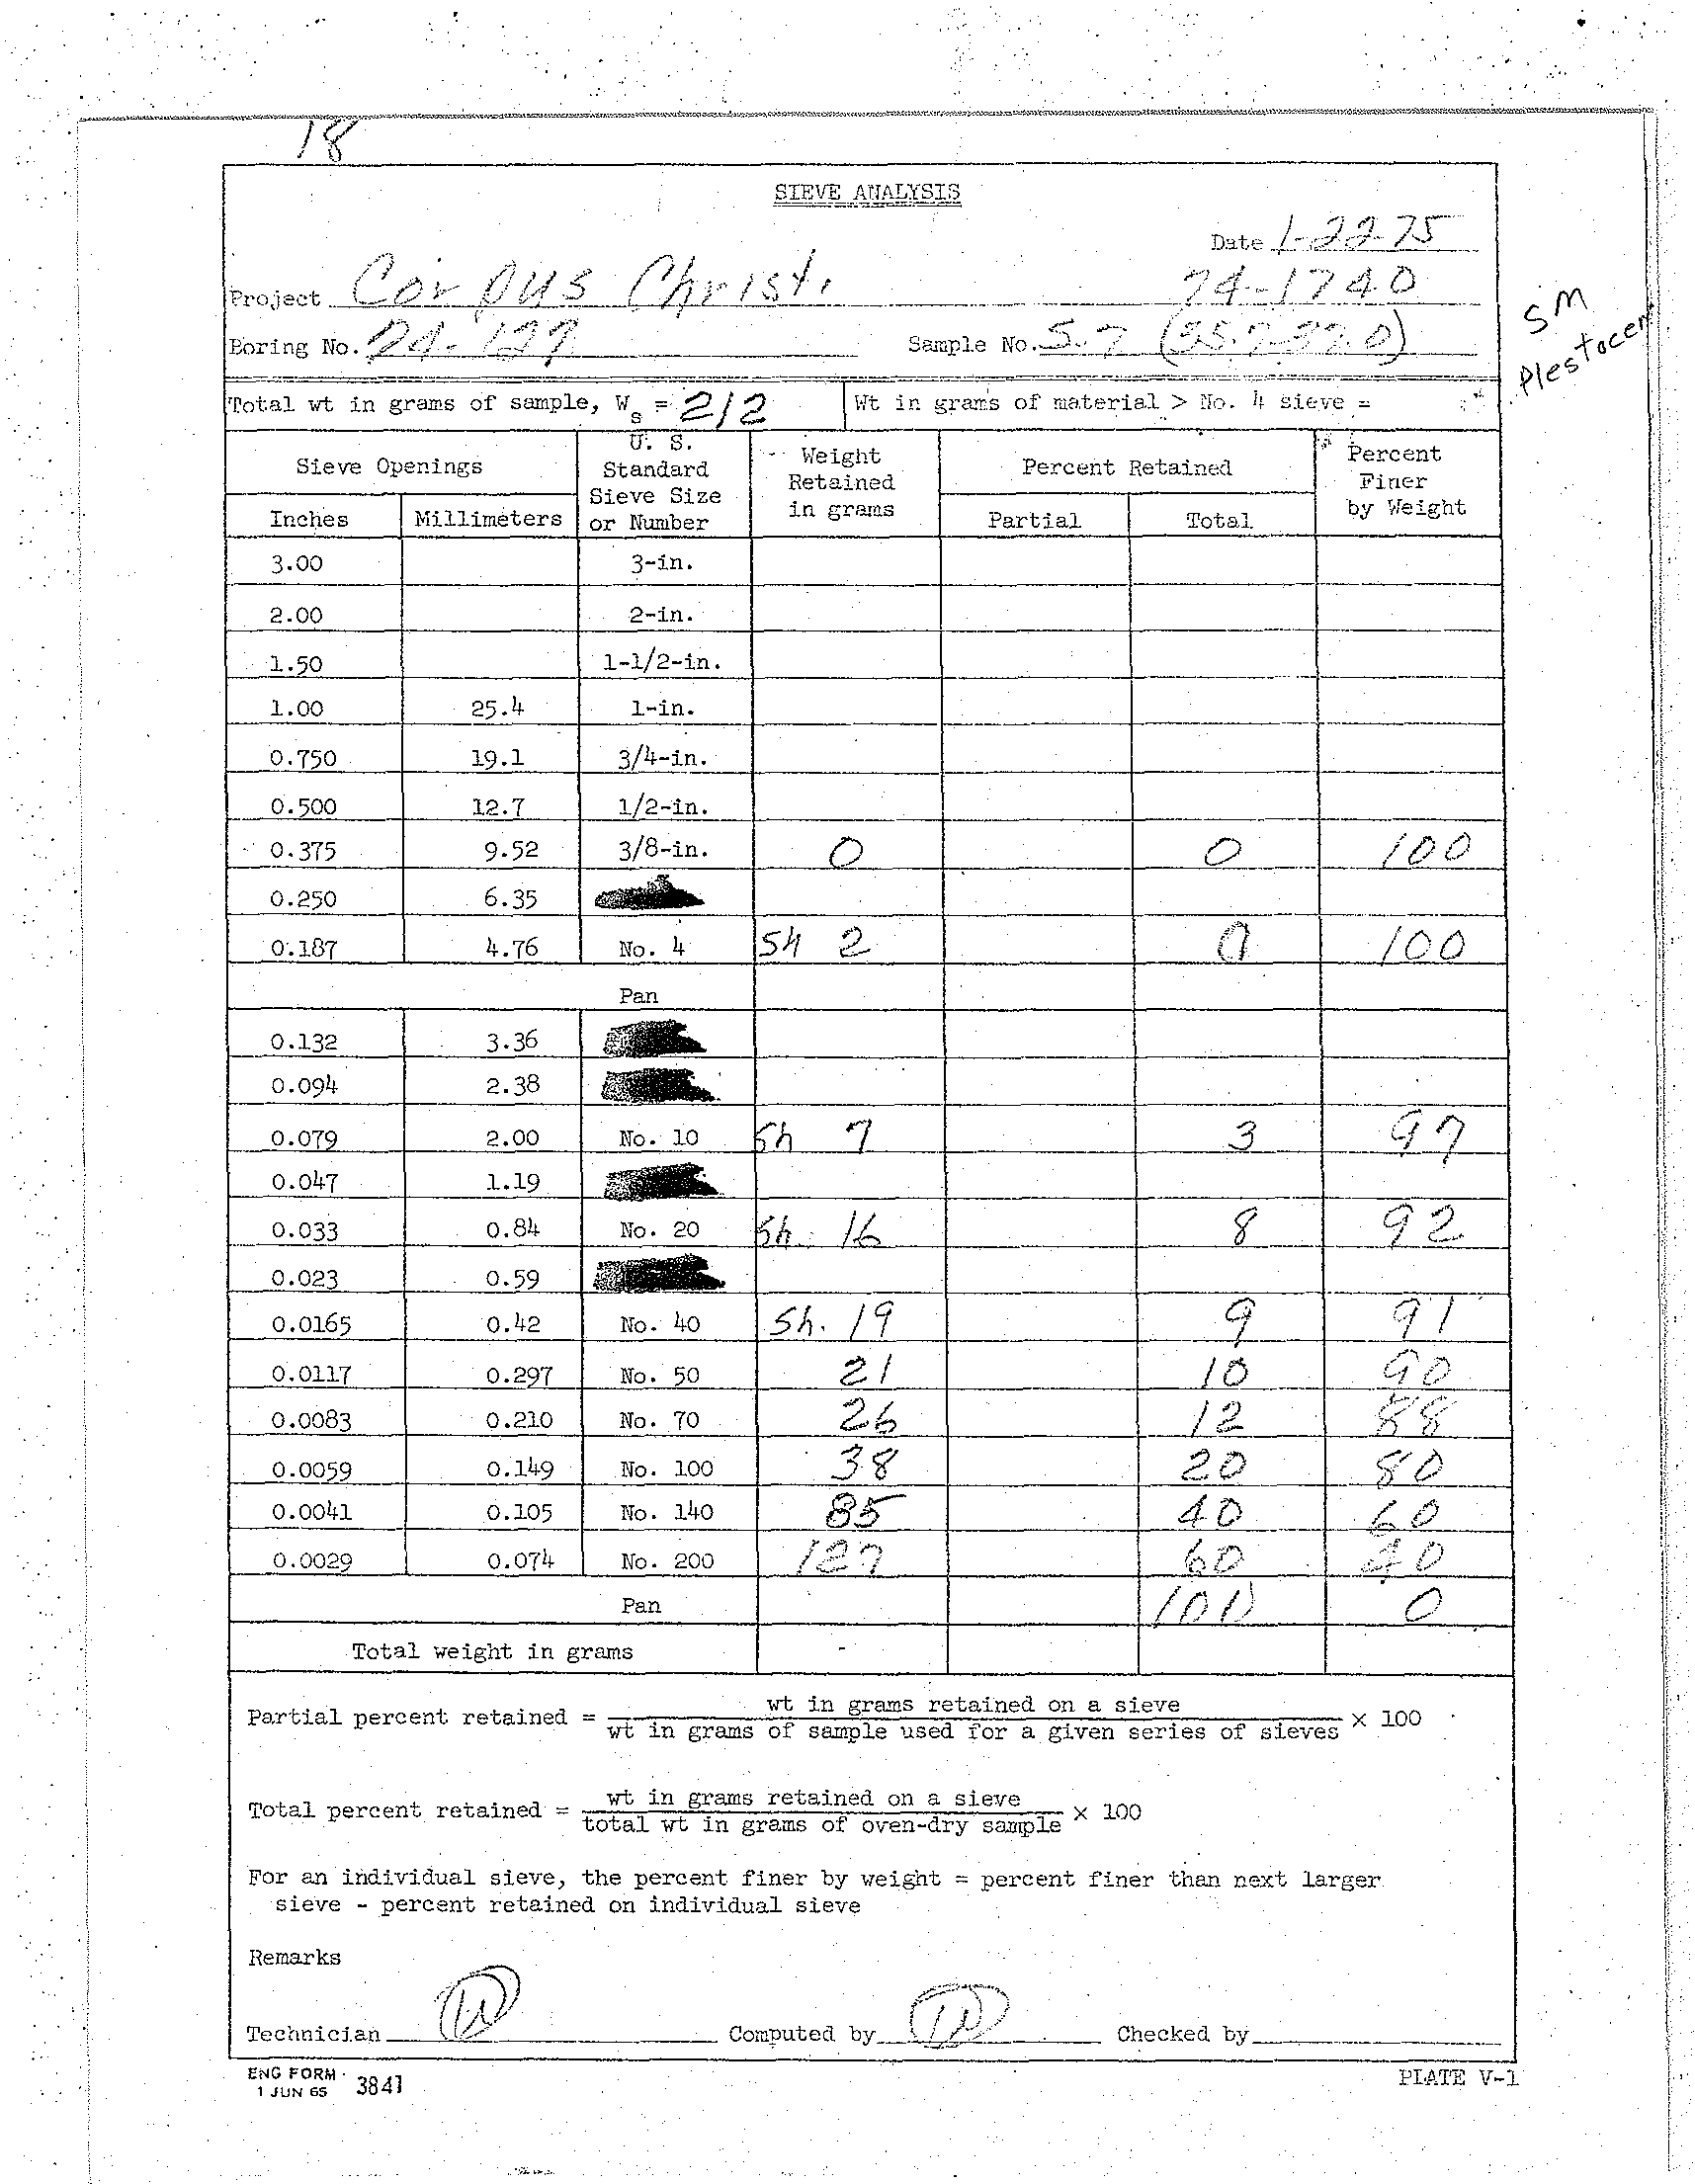 18
SIEVE ANALYSIS
Date 1-22-75
Project Corpus Christi 74-1740
Boring No. 74-177 Sample No. S-7
SM
Plestocen
Total wt in grams of sample, Ws = 212 Wt in grams of material > No. 4 sieve =
Sieve Openings U. S. Standard Sieve Size or Number Weight Retained in grams Percent Retained Percent Finer by Weight
Inches Millimeters Partial Total
3.00 3-in.
2.00 2-in.
1.50 1-1/2-in.
1.00 25.4 1-in.
0.750 19.1 3/4-in.
0.500 12.7 1/2-in.
0.375 9.52 3/8-in. 0 0 100
0.250 6.35
0.187 4.76 No. 4 Sh 2 0 100
Pan
0.132 3.36
0.094 2.38
0.079 2.00 No. 10 Sh 7 3 97
0.047 1.19
0.033 0.84 No. 20 Sh. 16 8 92
0.023 0.59
0.0165 0.42 No. 40 Sh. 19 9 91
0.0117 0.297 No. 50 21 10 90
0.0083 0.210 No. 70 26 12 88
0.0059 0.149 No. 100 38 20 80
0.0041 0.105 No. 140 85 40 60
0.0029 0.074 No. 200 127 60 40
Pan 100 0
Total weight in grams -
Partial percent retained = wt in grams retained on a sieve / wt in grams of sample used for a given series of sieves × 100
Total percent retained = wt in grams retained on a sieve / total wt in grams of oven-dry sample × 100
For an individual sieve, the percent finer by weight = percent finer than next larger
sieve - percent retained on individual sieve
Remarks
Technician Computed by Checked by
ENG FORM 3841
1 JUN 65
PLATE V-1